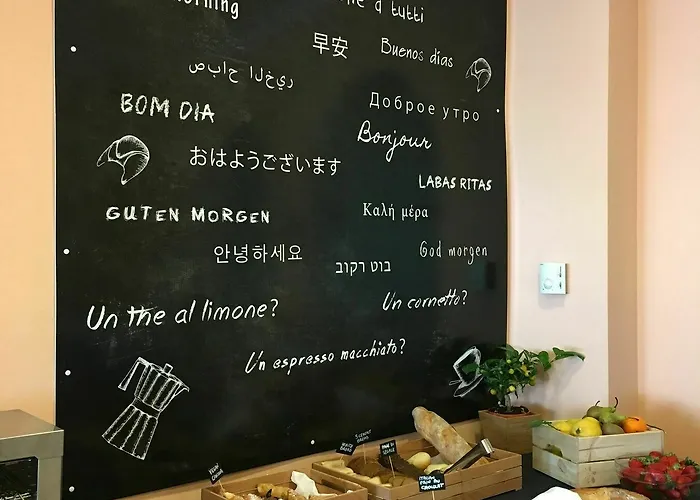 orning
a tutti
早安
Buenos días
ريخلا حابص
BOM DIA
Доброе утро
Bonjour
おはようございます
LABAS RITAS
GUTEN MORGEN
Καλή μέρα
안녕하세요
God morgen
בוט רקוב
Un the al limone?
Un cornetto?
Un espresso macchiato?
PANE DI
SEGALE